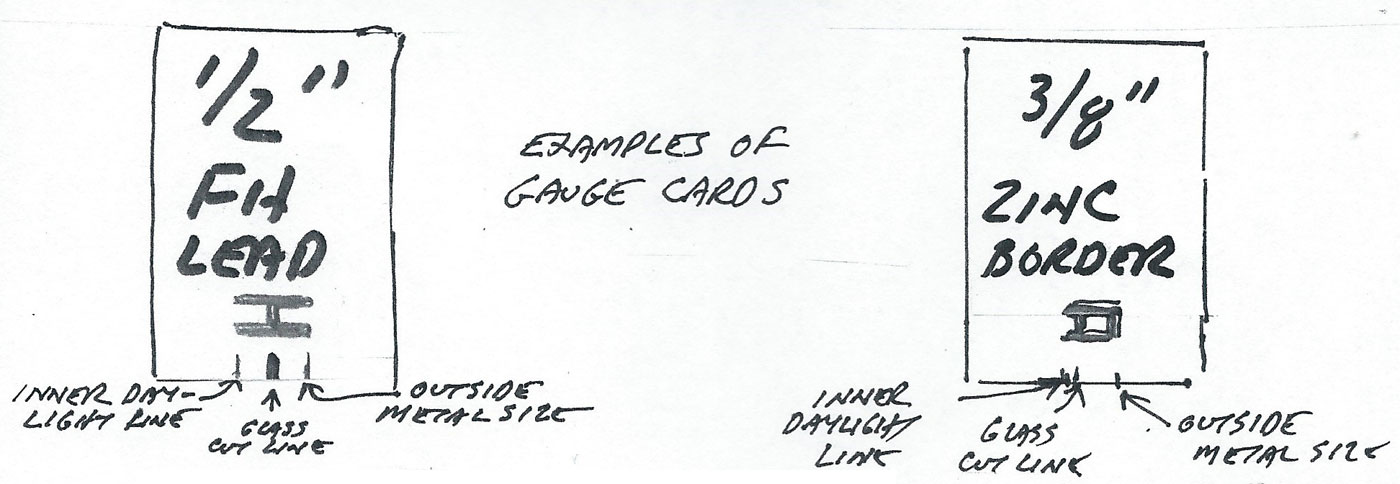 1/2"
FH
LEAD
INNER DAY-
LIGHT LINE
GLASS
CUT LINE
OUTSIDE
METAL SIZE
EXAMPLES OF
GAUGE CARDS
3/8"
ZINC
BORDER
INNER
DAYLIGHT
LINE
GLASS
CUT LINE
OUTSIDE
METAL SIZE